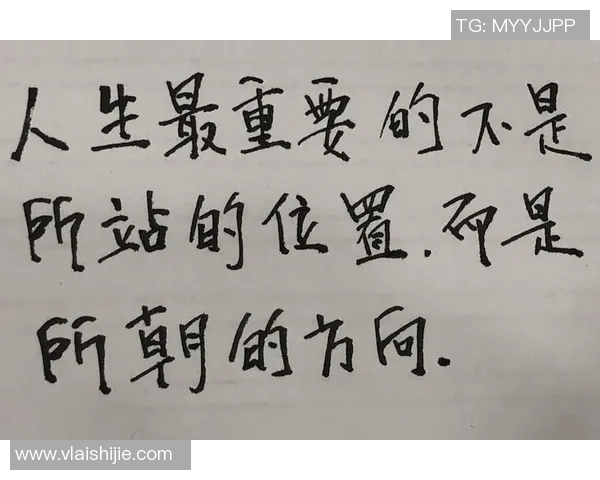 TG: MYYJJPP
人生最重要的不是
所站的位置.而是
所朝的方向.
www.vlaishijie.com